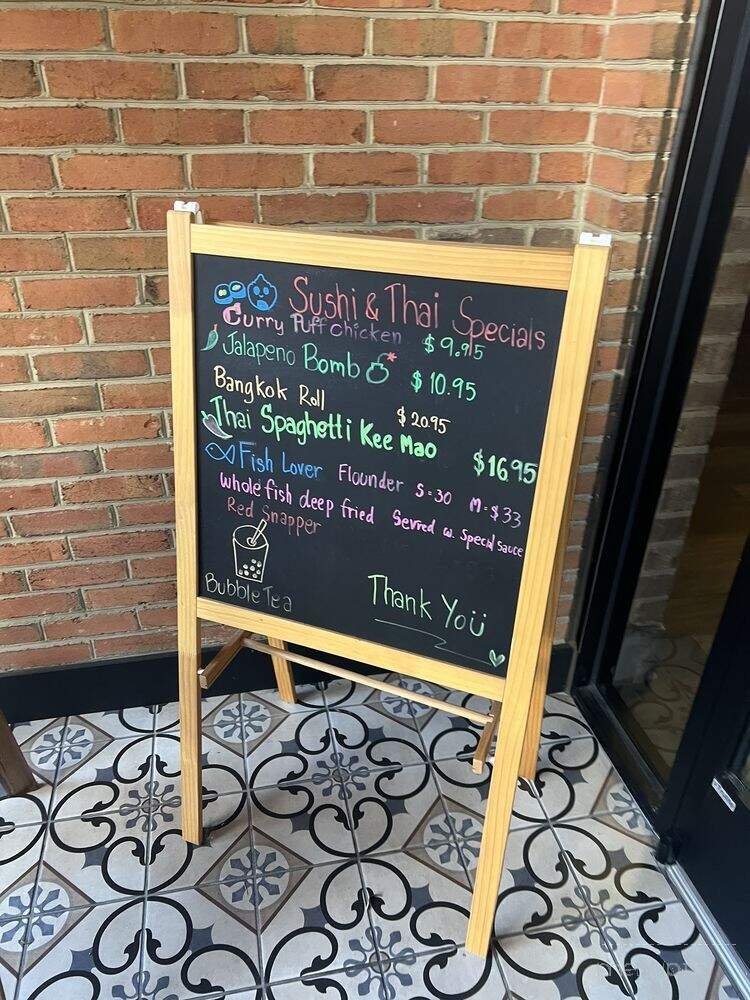 Sushi & Thai Specials
Curry Puff Chicken $9.95
Jalapeno Bomb $10.95
Bangkok Roll $20.95
Thai Spaghetti Kee Mao $16.95
Fish Lover Flounder S=30 M=$33
whole fish deep fried Serred w. Special sauce
Red Snapper
Bubble Tea
Thank Yoü